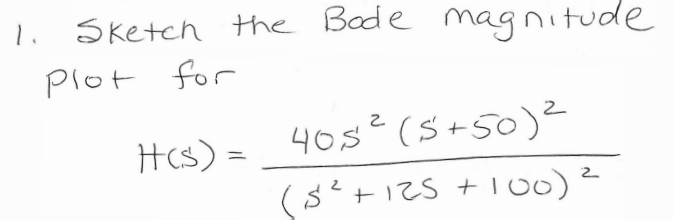 1. Sketch the Bode magnitude
plot for
H(s) = 40s² (s+50)² / (s² + 12s + 100)²